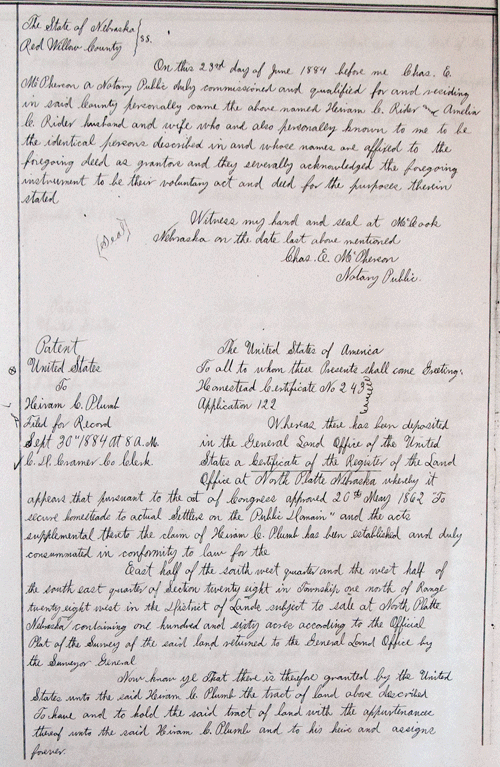 The State of Nebraska
Red Willow County } SS.
On this 23rd day of June 1884 before me Chas. E.
McPherson a Notary Public duly commissioned and qualified for and residing
in said County personally came the above named Heiram C. Rider and Amelia
C. Rider husband and wife who and also personally known to me to be
the identical persons described in and whose names are affixed to the
foregoing deed as grantors and they severally acknowledged the foregoing
instrument to be their voluntary act and deed for the purposes therein
stated
Witness my hand and seal at McCook
(Seal)
Nebraska on the date last above mentioned
Chas. E. McPherson
Notary Public.
Patent
United States
To
Heiram C. Plumb
Filed for Record
Sept 30th 1884 at 8 A.M.
C.D. Cramer Co Clerk
The United States of America
To all to whom these Presents shall come Greeting:
Homestead Certificate No 243
Application 122
Whereas there has been deposited
in the General Land Office of the United
States a Certificate of the Register of the Land
Office at North Platte Nebraska whereby it
appears that pursuant to the act of Congress approved 20th May 1862 "To
secure homesteads to actual Settlers on the Public Domain" and the acts
supplemental thereto the claim of Heiram C. Plumb has been established and duly
consummated in conformity to law for the
East half of the south west quarter and the west half of
the south east quarter of Section twenty eight in Township one north of Range
twenty eight west in the District of Lands subject to sale at North Platte
Nebraska containing one hundred and sixty acres according to the Official
Plat of the Survey of the said land returned to the General Land Office by
the Surveyor General
Now know ye That there is therefore granted by the United
States unto the said Heiram C. Plumb the tract of land above described
To have and to hold the said tract of land with the appurtenances
thereof unto the said Heiram C. Plumb and to his heirs and assigns
forever.